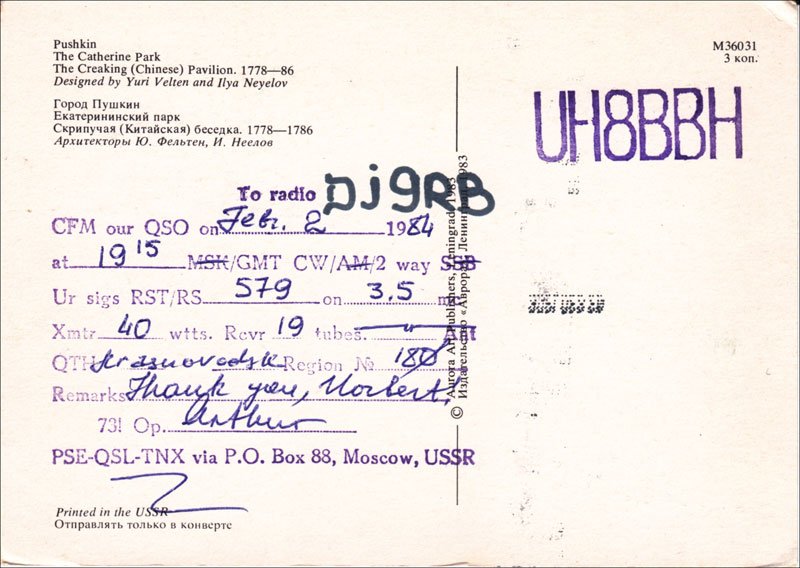 Pushkin
The Catherine Park
The Creaking (Chinese) Pavilion. 1778—86
Designed by Yuri Velten and Ilya Neyelov
Город Пушкин
Екатерининский парк
Скрипучая (Китайская) беседка. 1778—1786
Архитекторы Ю. Фельтен, И. Неелов
M36031
3 коп.
UH8BBH
To radio DJ9RB
CFM our QSO on Febr. 2 1984
at 19 15 MSK/GMT CW/AM/2 way SSB
Ur sigs RST/RS 579 on 3.5 mc
Xmtr 40 wtts. Rcvr 19 tubes.
QTH Krasnovodsk Region № 180
Remarks Thank you, Norbert.
73! Op. Arthur
PSE-QSL-TNX via P.O. Box 88, Moscow, USSR
Printed in the USSR
Отправлять только в конверте
© Aurora Art Publishers, Leningrad, 1983
Издательство «Аврора», Ленинград, 1983